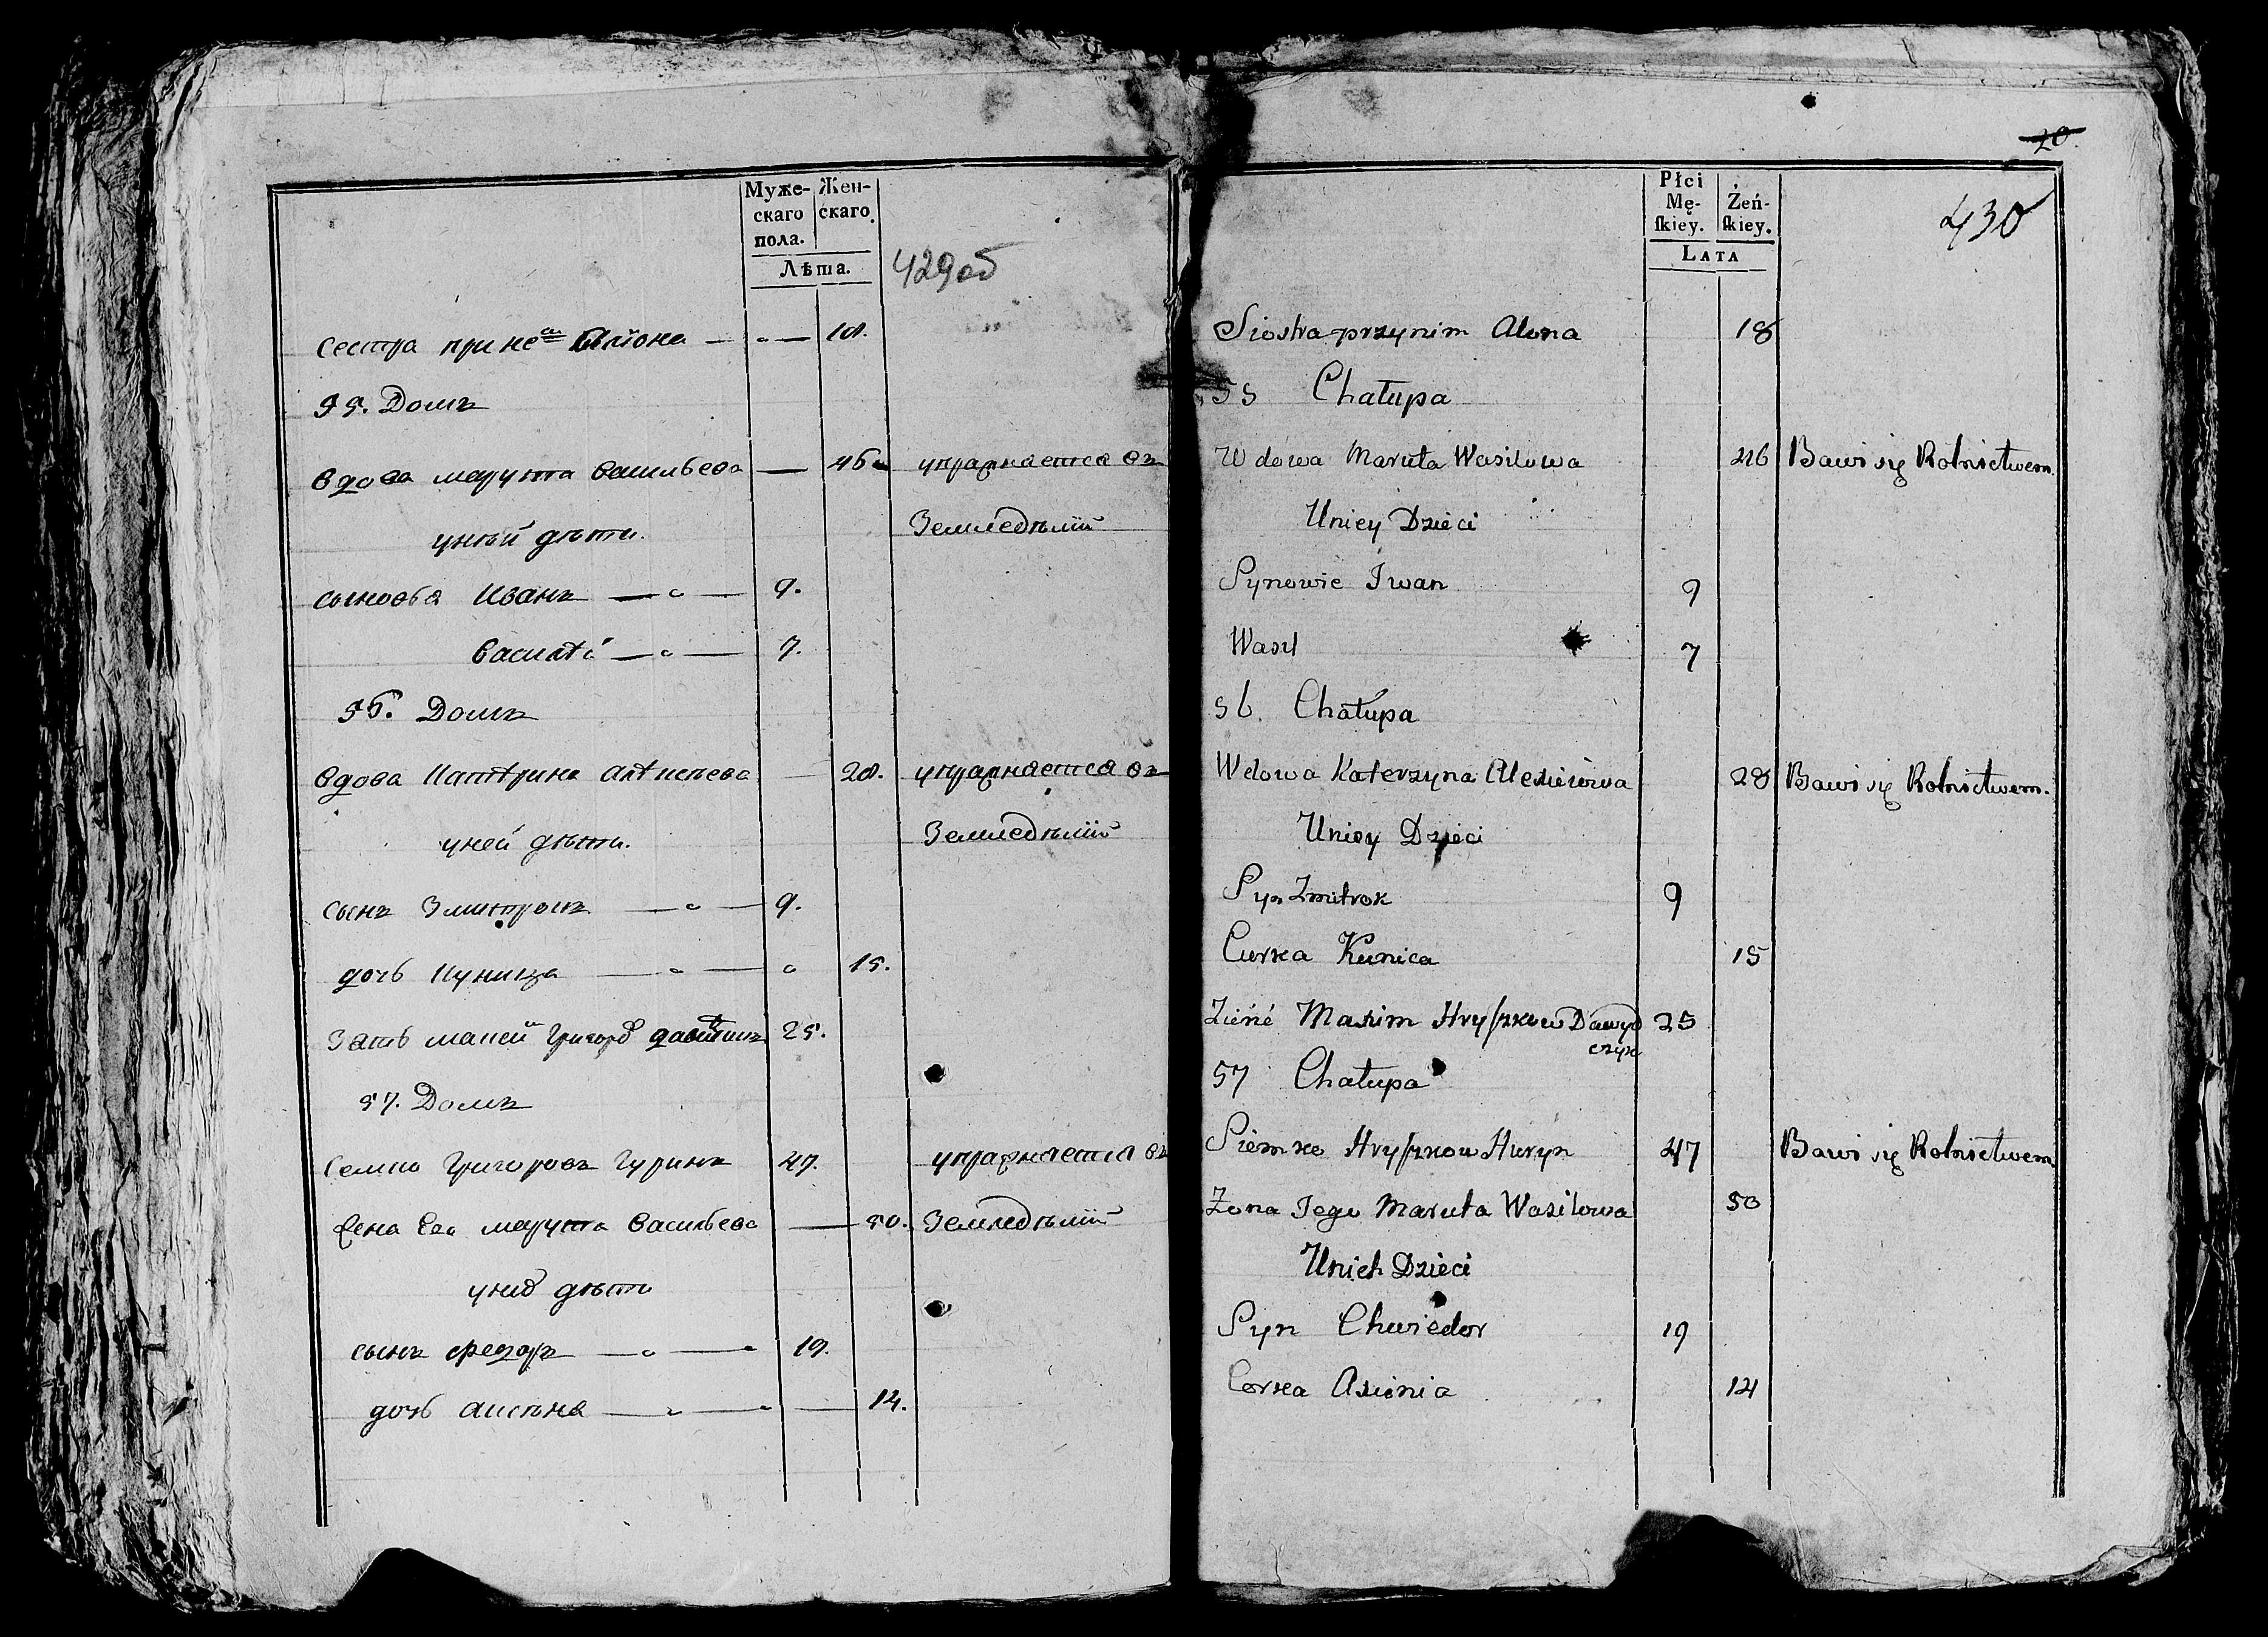 Муже-
скаго
пола.
Жен-
скаго.
Лѣта.
429об
сестра при не Алiона — 18.
55. Домъ
вдова марута васильева — 46 упражняется въ
уней дѣти. Земледѣлiи
сыновья Иванъ — 9.
василей — 7.
56. Домъ
вдова Катерина алексеева — 28. упражняется въ
уней дѣти. Земледѣлiи
сынъ Змитрокъ — 9.
дочь Куница — 15.
Зять максим Григоро 25.
57. Домъ
семко Григоровъ Гуринъ 47. упражняется въ
жена Его марута васильева — 50. Земледѣлiи
уних дѣти
сынъ федоръ — 19.
дочь аксеня — 14.
20.
Płci
Mę-
ſkiey.
Żeń-
ſkiey.
LATA
430
Siostra przynim Alona 18
55 Chałupa
Wdowa Maruta Wasilowa 46 Bawi się Rolnictwem.
Uniey Dzieci
Synowie Iwan 9
Wasyl 7
56. Chałupa
Wdowa Katerzyna Alexieiowa 28 Bawi się Rolnictwem.
Uniey Dzieci
Syn Zmitrok 9
Curka Kunica 15
Zięńć Maxim Hryſzkow Dawyd 25
czyk
57 Chałupa
Siemko Hryſzkow Huryn 47 Bawi się Rolnictwem.
Zona Jego Maruta Wasilowa 50
Unich Dzieci
Syn Chwiedor 19
Corka Axienia 14